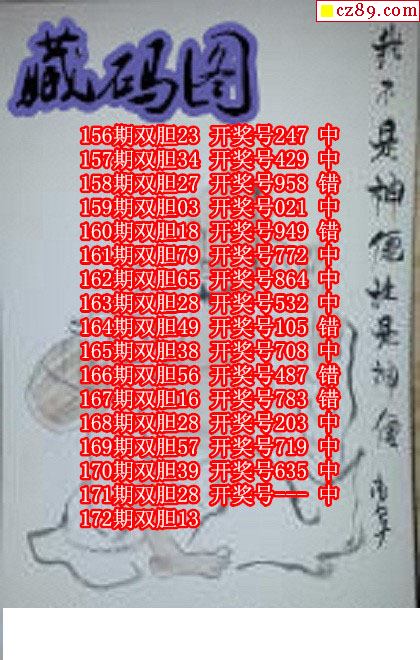 cz89.com
藏码图
156期双胆23 开奖号247 中
157期双胆34 开奖号429 中
158期双胆27 开奖号958 错
159期双胆03 开奖号021 中
160期双胆18 开奖号949 错
161期双胆79 开奖号772 中
162期双胆65 开奖号864 中
163期双胆28 开奖号532 中
164期双胆49 开奖号105 错
165期双胆38 开奖号708 中
166期双胆56 开奖号487 错
167期双胆16 开奖号783 错
168期双胆28 开奖号203 中
169期双胆57 开奖号719 中
170期双胆39 开奖号635 中
171期双胆28 开奖号--- 中
172期双胆13
我不是神仙是神仙